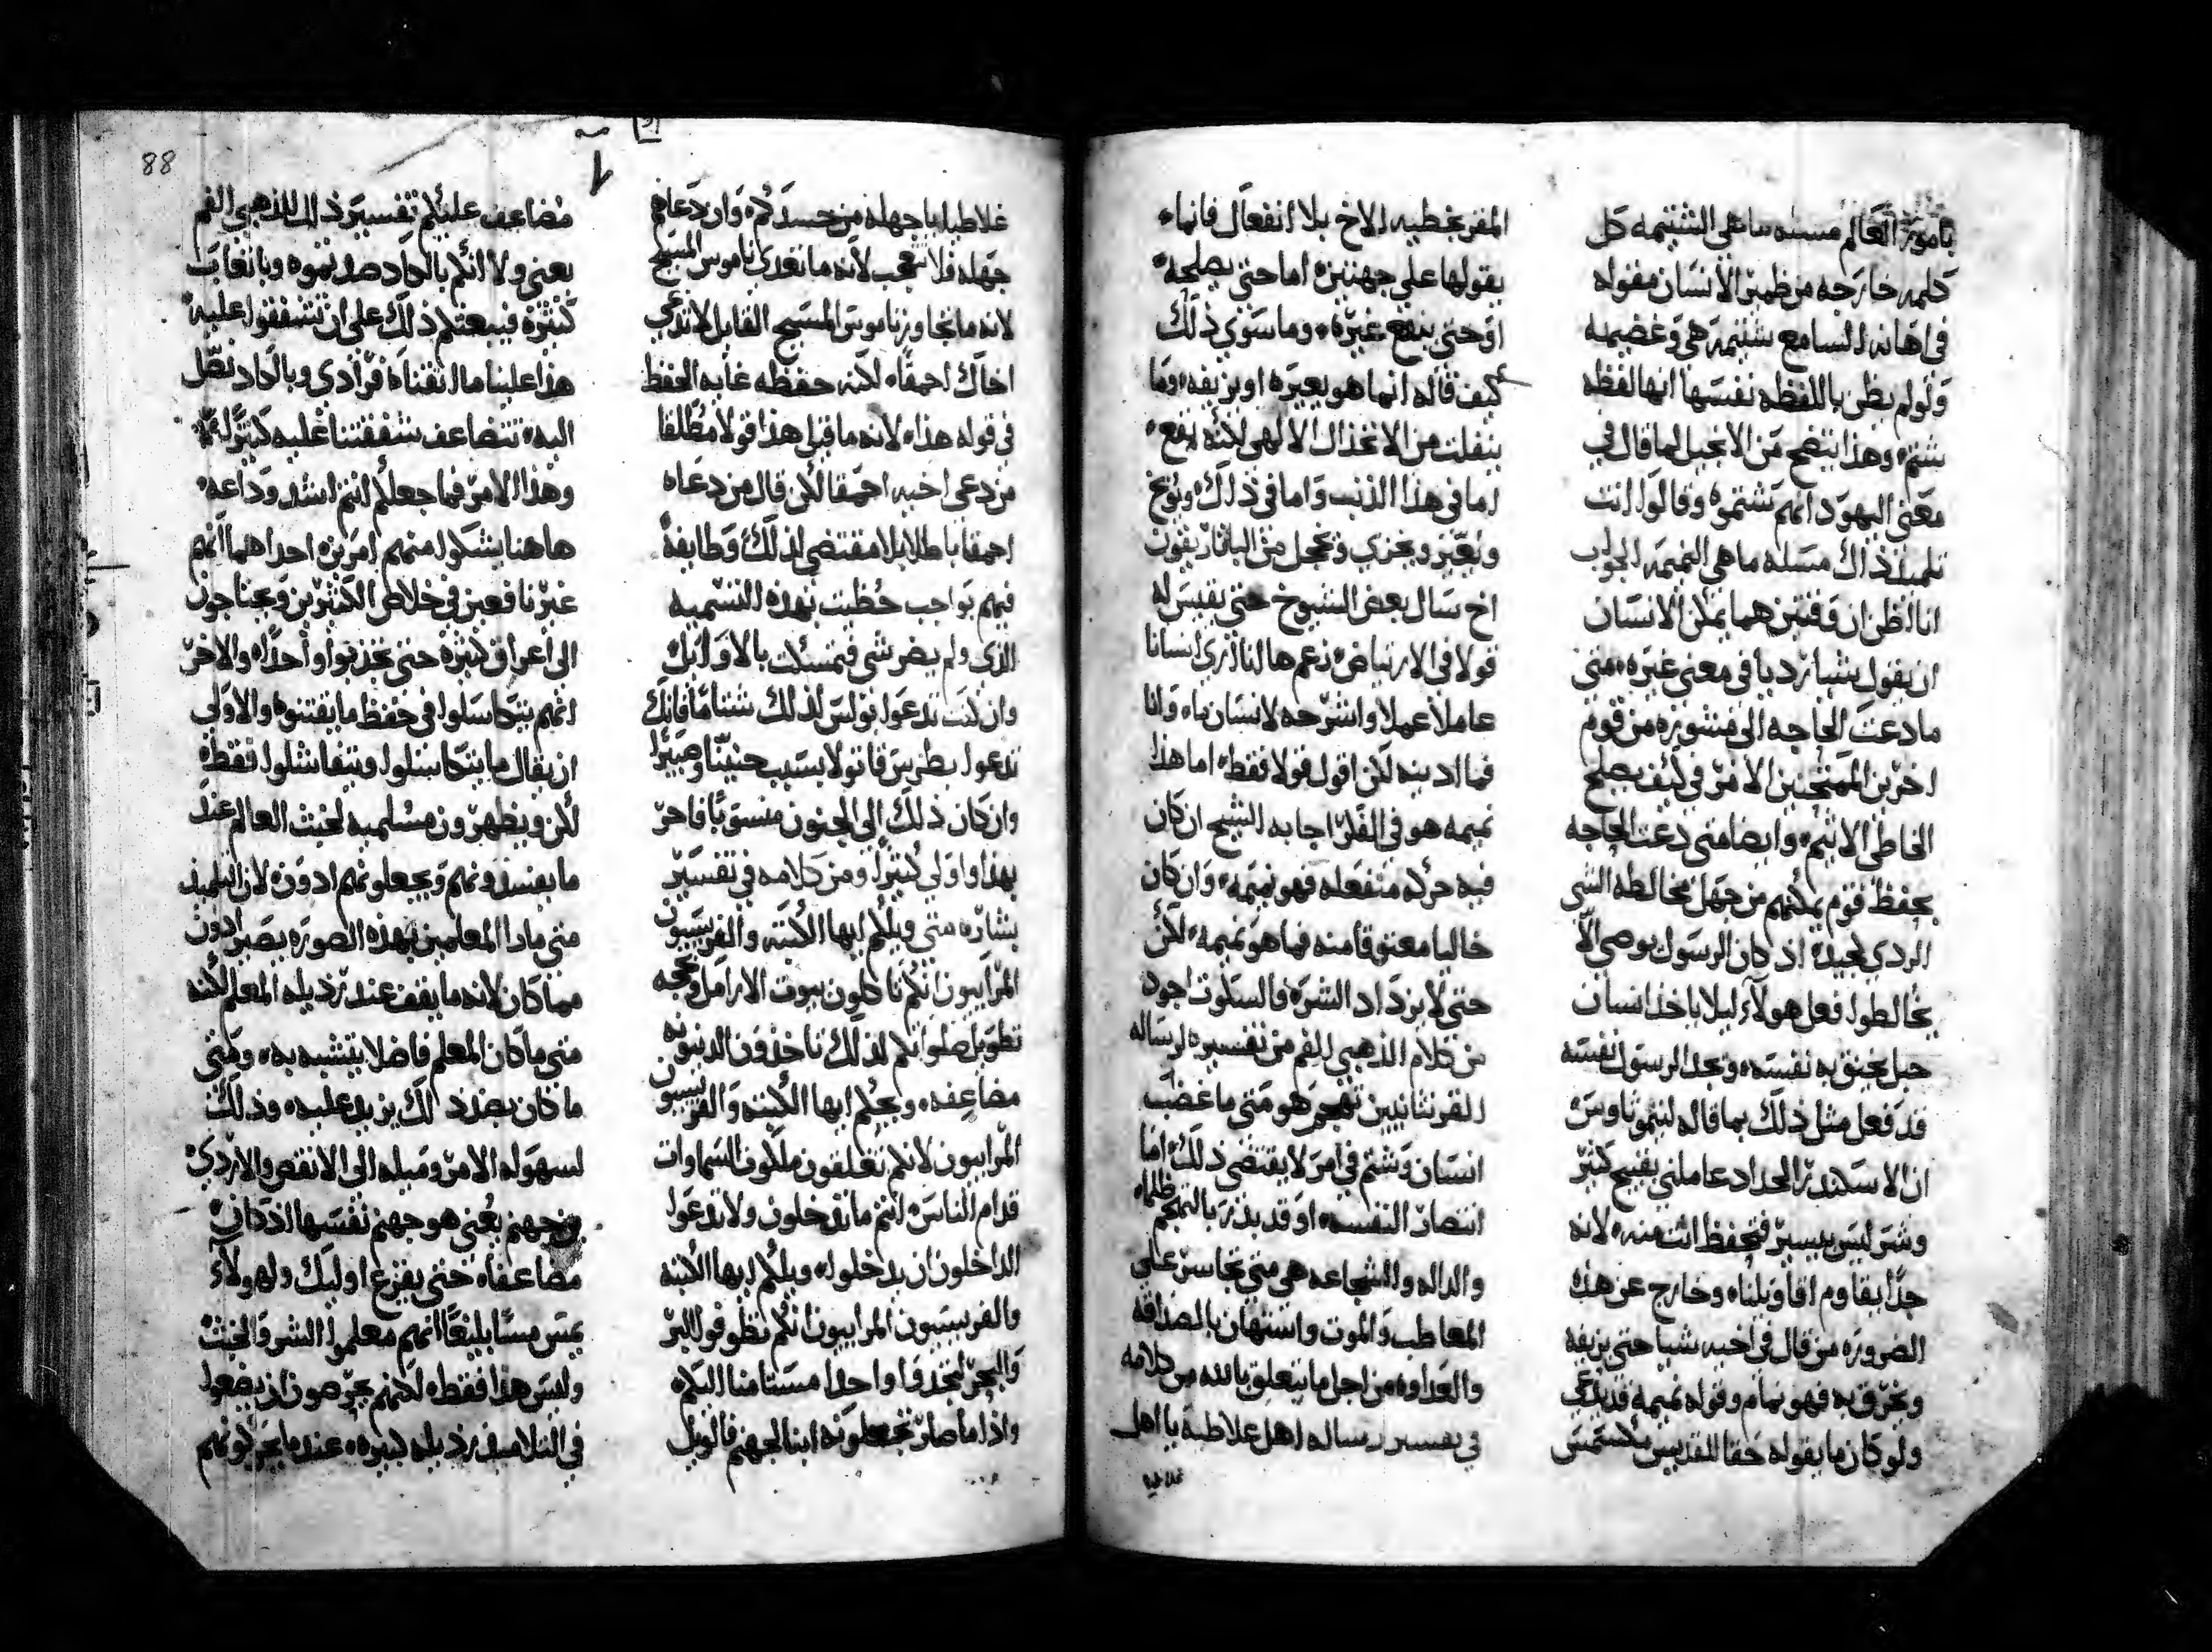 بامور العالم مسله ما هي الشتيمه كل
كلمه خارجه من ظمير الانسان مقوله
في اهانه السامع شتيمه هي وغضيمه
ولو لم يظن باللفظه نفسها انها لفظه
شتم وهذا يتضح من الانجيل لما قال في
معني اليهود انهم شتموه وقالوا انت
تلميذ ذاك مسله ما هي النميمه الجواب
انا اظن ان وقتين هما يمكن الانسان
ان يقول شيا رديا في معني غيره متي
ما دعت الحاجه الي مشوره من قوم
اخرين الممتحنين الامر في كيف يصلح
الخاطي الاثيم وايضا متي دعت الحاجه
بحفظ قوم يمكنهم من جهل مخالطه الشي
الردي لجيده اذ كان الرسول يوصي الا
يخالطوا فعل هولاء ليلا ياخذ انسان
حبل يخنق به نفسه ونجد الرسول نفسه
قد فعل مثل ذلك بما قاله لتيموثاوس
ان الاسكندر الحداد عاملني بقبيح كثير
وشر ليس بيسير فتحفظ انت منه لانه
جدا يقاوم اقاويلنا وخارج عن هذه
الضروره من قال في اخيه شيا حتي يزيفه
ويحرق به فهو نمام وقوله نميمه قد يدعي
ولو كان ما يقوله حقا للقديس
المقر بخطيه الاخ بلا انفعال فانما
يقولها علي جهتين اما حتي يصلحه
او حتي ينفع غيره وما سوي ذلك
كيف قاله انما هو يعيره او يزيفه وما
ينفلت من الانخذال الالهي لكنه يقع
اما في هذا الذنب واما في ذلك ويوبخ
ويعير ويخزي ويخجل من
اخ سال بعض الشيوخ حتي يقيس له
قولا في الارتياض زعم ها انا اري انسانا
عاملا عملا واشرحه لانسان ما وانا
فما ادينه لكن اقول قولا فقط اما هذا
نميمه هو في الفكر اجابه الشيخ ان كان
فيه حركه منفعله فهو نميمه وان كان
خاليا معتوقا منه فما هو نميمه لكن
حتي لا يزداد الشر فالسكوت اجود
من كلام الذهبي الفم من تفسيره لرساله
القرنثانيين تهجم هو متي ما غضب
انسان وشتم في امر لا يقتضي ذلك اما
انتصار النفسه او قد يذر بالتهجم ظلما
والداله والشجاعه هي متي تجاسر علي
المعاطب والموت واستهان بالصداقه
والعداوه من اجل ما يتعلق بالله من كلامه
في تفسير رساله اهل غلاطيه يا اهل
غلاطيه
88
غلاطيا يا جهله من حسدكم وان دعاهم
جهله فلا تتعجب لانه ما تعدي ناموس المسيح
لانه ما تجاوز ناموس المسيح القايل لا تدعي
اخاك احمقا لكنه حفظه غايه الحفظ
في قوله هذا لانه ما قيل هذا قولا مطلقا
من دعي اخيه احمقا لكن قال من دعاه
احمقا باطلا بلا مقتضي لذلك وطايفة
فيهم بواجب حظيت بهذه التسميه
الذي ولم يضر شي فتمسكت بالاوايل
وان كنت تدعوا بولس لذلك شتاما فانك
تدعوا بطرس قاتولا بسبب حنينا وصبيرا
وان كان ذلك الي الجنون منسوبا فاحر
بهذا واولي كثيرا ومن كلامه في تفسير
بشاره متي ويلكم ايها الكتبه والفريسيون
المرايون انكم تاكلون بيوت الارامل وبحجه
تطويل صلواتكم لذلك تاخذون الدينونه
مضاعفه ويحكم ايها الكتبه والفريسيون
المرايون لانكم تغلقون ملكوت السماوات
قدام الناس انتم ما تدخلون ولا تدعوا
الداخلون ان يدخلوا ويلكم ايها الكتبه
والفريسيون المرايون انكم تطوفوا البر
والبحر لتخذوا واحدا مستامنا اليكم
واذا ما صار تجعلونه ابنا لجهنم فالويل
مضاعف عليكم تفسير ذلك للذهبي الفم
يعني ولا انكم بالكاد صدتموه وباتعاب
كثيره فيبعثكم ذلك علي ان تشفقوا عليه
هذا علينا ما اتقناه فرادي وبالكاد نصل
اليه تتضاعف شفقتنا عليه كثيرا
وهذا الامر فما جعلكم انتم اشد وداعه
هاهنا يشكوا منهم امرين احداهما انهم
غير نافعين في خلاص الكثيرين ويحتاجون
الي اعراق كثيره حتي يجذبوا واحدا والاخر
انهم يتكاسلوا في حفظ ما يقتنوه والاولي
ان يقال ما يتكاسلوا ويتفاشلوا فقط
لكن ويظهرون مسلميه لخبث العالم عند
ما يفسدونهم ويجعلونهم ادون لان التلميذ
متي ما راا المعلمين بهذه الصوره يصير ادون
مما كان لانه ما يقف عند رذيله المعلم لكنه
متي ما كان المعلم فاضلا يتشبه به ومتي
ما كان بضد ذلك يزيد عليه وذلك
لسهوله الامر وميله الي الانقص والاردي
جهنم يعني هو جهنم نفسها اذ كان
مضاعفا حتي يفزع اوليك ولهولاء
يمس مسا بليغا انهم معلموا الشر والخبث
وليس هذا فقط لكنهم يحرصون ان يضعوا
في التلاميذ رذيله كبيره عند ما يحركونهم